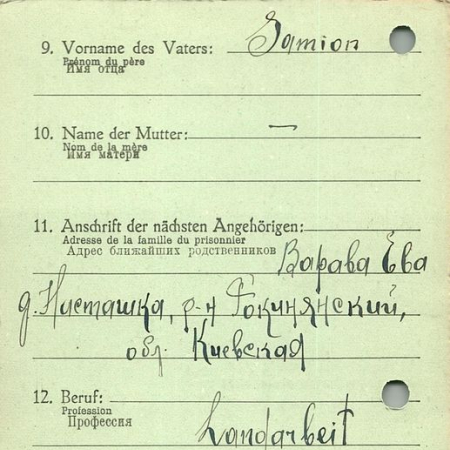 9. Vorname des Vaters: Samion
Prénom du père
Имя отца
10. Name der Mutter: —
Nom de la mère
Имя матери
11. Anschrift der nächsten Angehörigen:
Adresse de la famille du prisonnier
Адрес ближайших родственников Варава Ева
д. Насташка, р-н Рокинянский,
обл. Киевская
12. Beruf:
Profession
Профессия Landarbeit